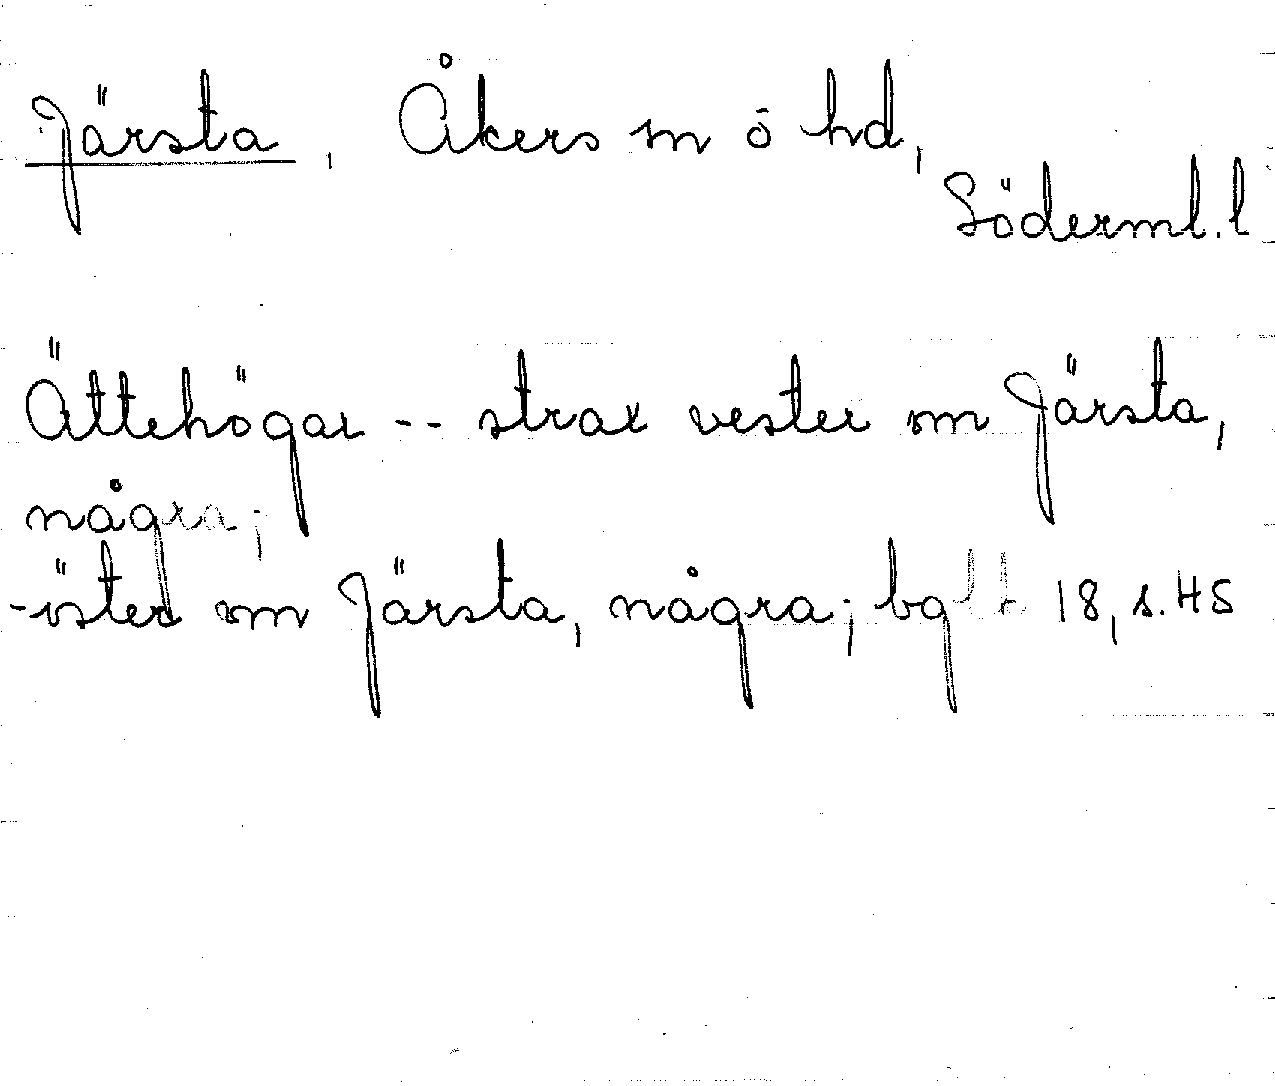 Järsta, Åkers sn ö hd,
Söderml. l
Ättehögar -- strax vester om Järsta,
några;
-öster om Järsta, några; bglt 18, s. 45